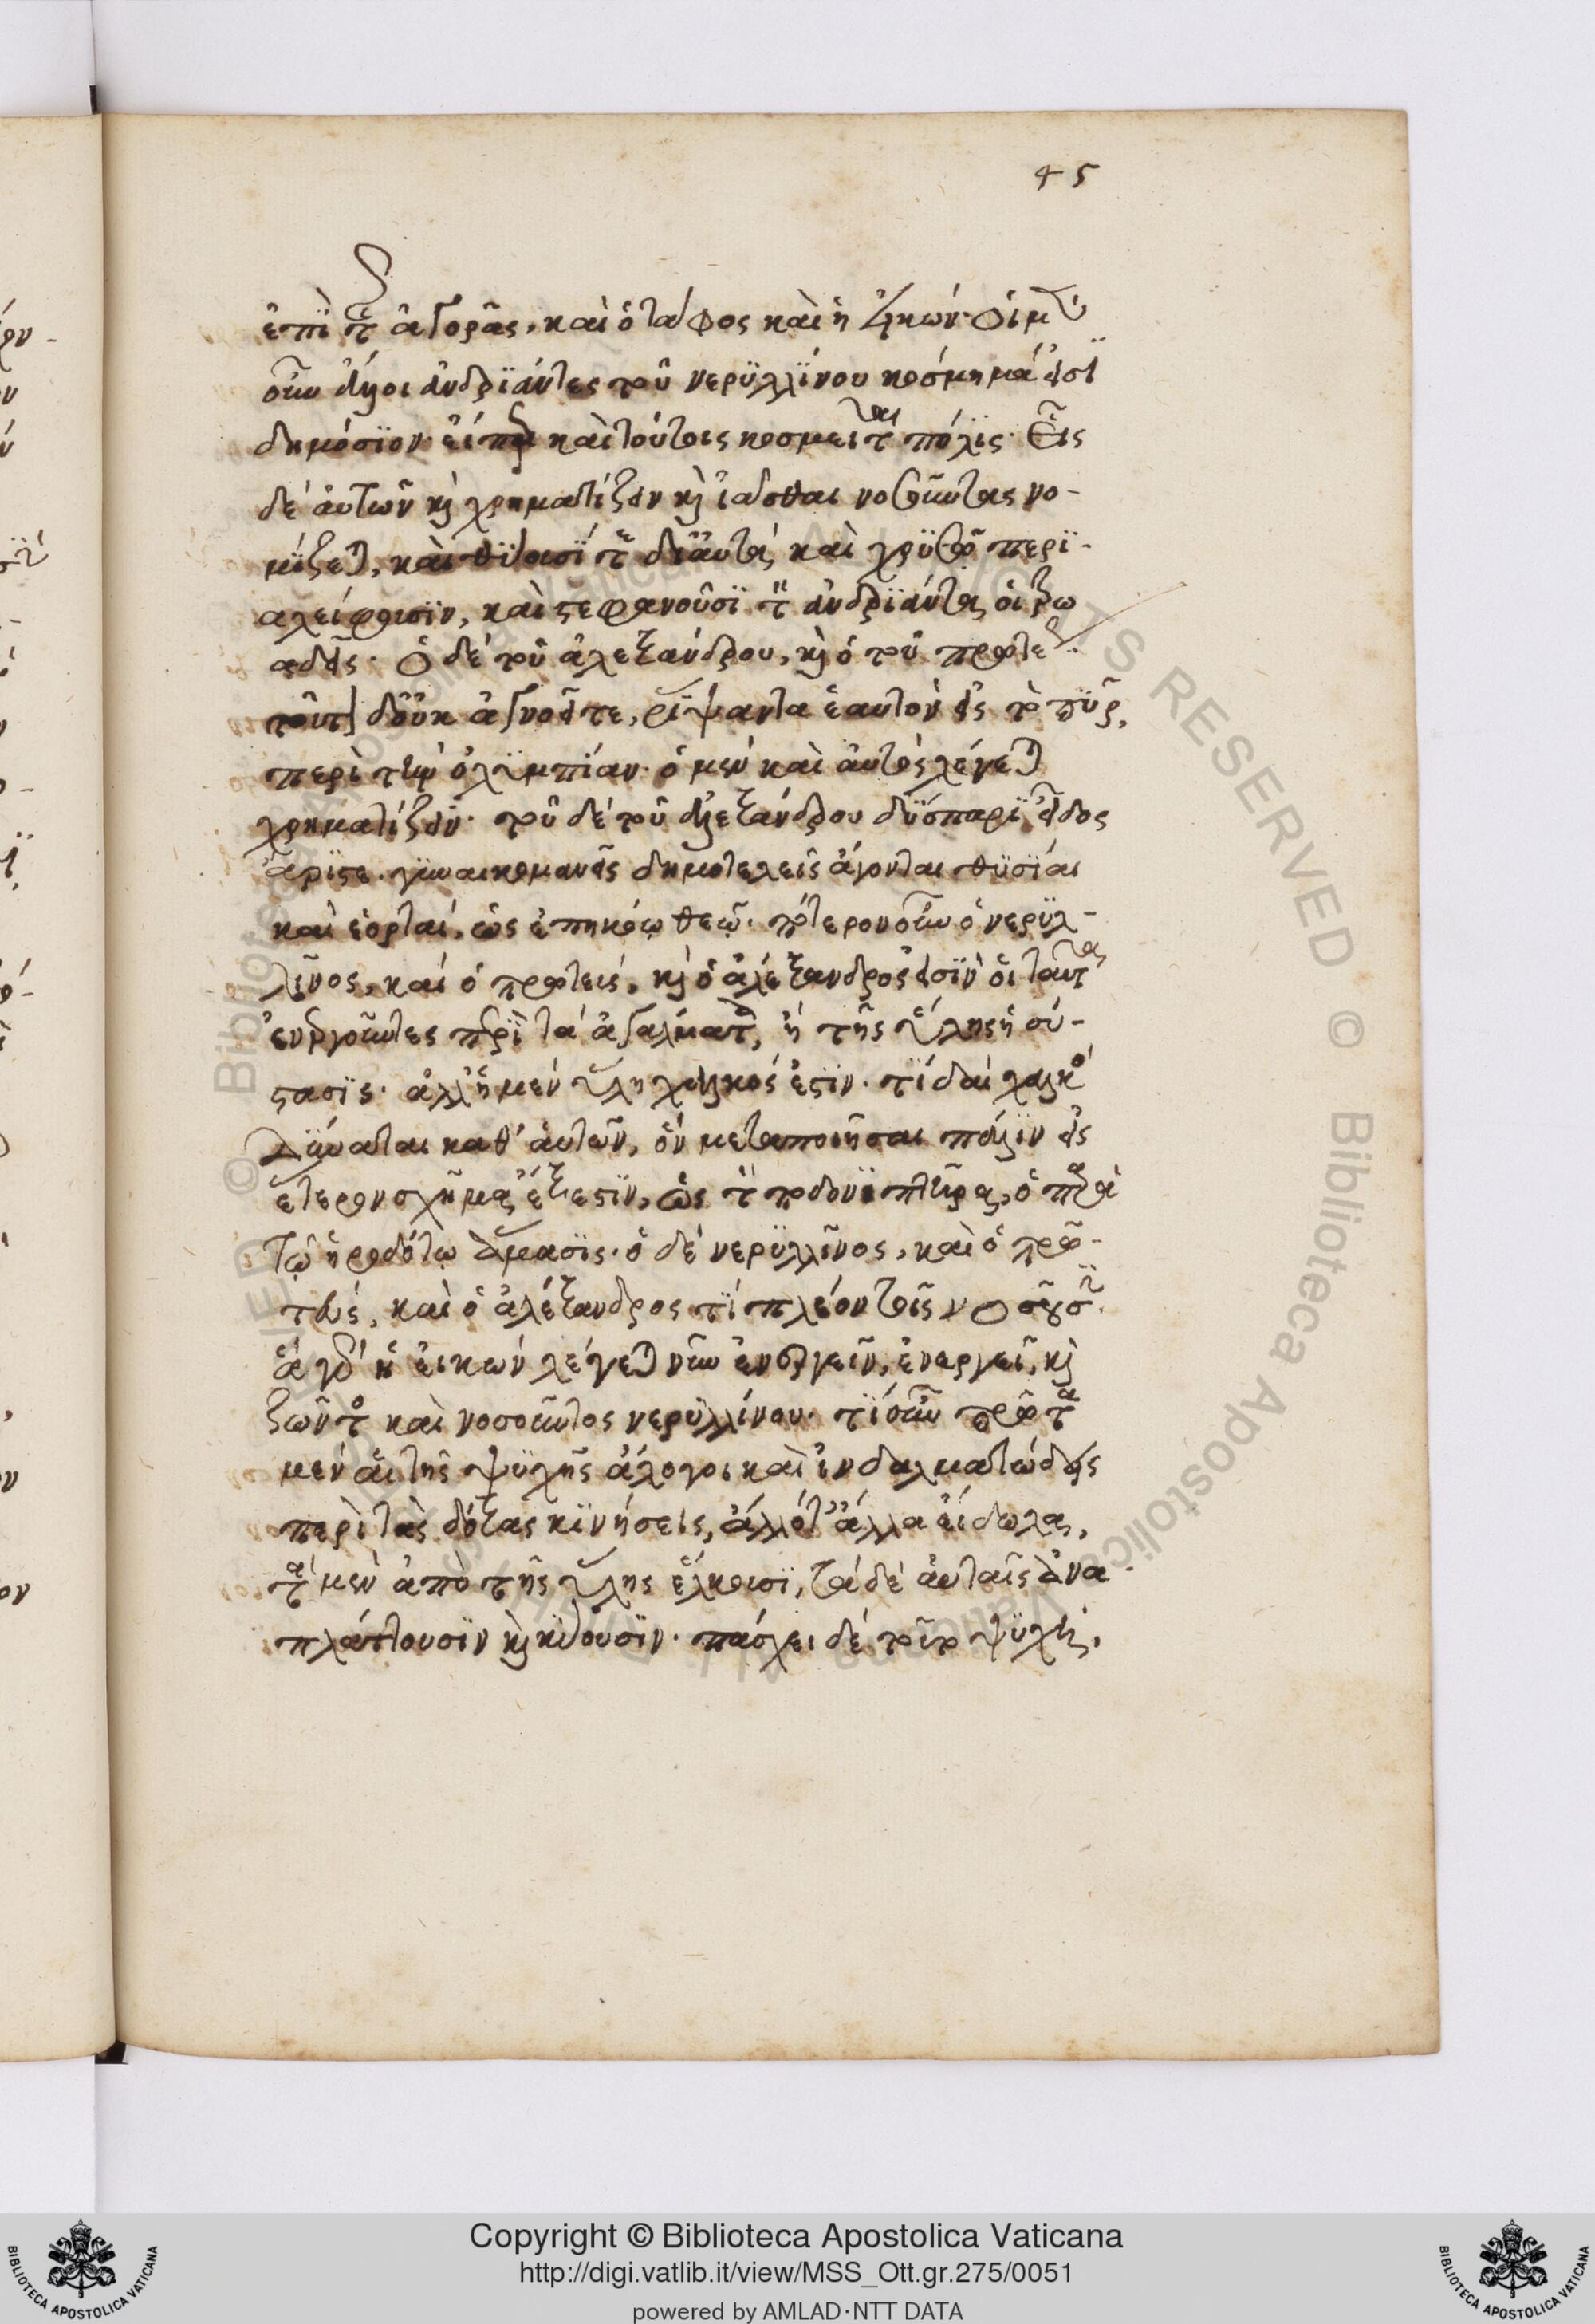 45
ἐπὶ τῆς ἀγορᾶς, καὶ ὁ τάφος καὶ ἡ εἰκών· οἱ μὲν
οὖν ἄλλοι ἀνδριάντες τοῦ νερυλλίνου κοσμημά εἰσι
δημόσιον· εἴπερ καὶ τούτοις κοσμεῖται πόλις· Εἷς
δὲ αὐτῶν καὶ χρηματίζειν καὶ ἰᾶσθαι νοσοῦντας νο-
μίζεται, καὶ θύουσί τε δι' αὐτὰ καὶ χρυσῷ περι-
αλείφουσιν, καὶ στεφανοῦσι τὸν ἀνδριάντα οἱ τρω
αδεῖς· Ὁ δὲ τοῦ ἀλεξάνδρου, καὶ ὁ τοῦ πρωτέως
τοῦτον δ' οὐκ ἀγνοεῖτε, ῥίψαντα ἑαυτὸν εἰς τὸ πῦρ,
περὶ τὴν ὀλυμπίαν· ὁ μὲν καὶ αὐτὸς λέγεται
χρηματίζειν· τοῦ δὲ τοῦ ἀλεξάνδρου δύσπαρι εἶδος
ἄριστε. γυναικομανὲς δημοτελεῖς ἄγονται θυσίαι
καὶ ἑορταί, ὡς ἐπηκόῳ θεῷ· πότερον οὖν ὁ νερυλ-
λῖνος, καὶ ὁ πρωτεύς, καὶ ὁ ἀλέξανδρός εἰσιν οἱ ταῦτα
ἐνεργοῦντες περὶ τὰ ἀγάλματα, ἢ τῆς ὕλης ἡ σύ-
στασις· ἀλλ' ἡ μὲν ὕλη χαλκός ἐστιν· τί δαὶ χαλκὸς
Δύναται καθ' αὑτὸν, ὃν μεταποιῆσαι πάλιν εἰς
ἕτερον σχῆμα ἔξεστιν, ὡς τὸν ποδονιπτῆρα, ὁ παρὰ
τῷ ἡροδότῳ ἄμασις· ὁ δὲ νερυλλῖνος, καὶ ὁ πρω-
τεύς, καὶ ὁ ἀλέξανδρος τί πλέον τοῖς νοσοῦσιν.
ἃ γὰρ ἡ εἰκὼν λέγεται νῦν ἐνεργεῖν, ἐνεργεῖ, καὶ
ζῶντος καὶ νοσοῦντος νερυλλίνου· τί οὖν πρῶτα
μὲν αἱ τῆς ψυχῆς ἄλογοι καὶ ἰνδαλματώδεις
περὶ τὰς δόξας κινήσεις, ἄλλοτ' ἄλλα εἴδωλα,
τὰ μὲν ἀπὸ τῆς ὕλης ἕλκουσι, τὰ δὲ αὑταῖς ἀνα
πλάττουσιν καὶ κύουσιν· πάσχει δὲ τοῦτο ψυχή,
Copyright © Biblioteca Apostolica Vaticana
http://digi.vatlib.it/view/MSS_Ott.gr.275/0051
powered by AMLAD·NTT DATA